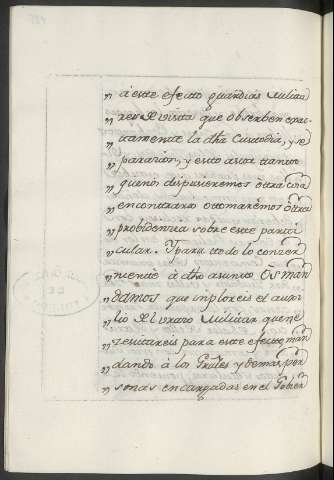 „ à este efecto guardias Milita
„ res de vista que observen exac
„ tamente la dha Custodia, y se
„ paracion, y esto asta tanto
„ que no dispusieremos otra cosa
„ en contrario ô tomaremos ôtra
„ probidencia sobre este parti
„ cular. Y para todo lo conzer
„ niente à dho asunto Ôs man
„ damos que imploreis el auxi
„ lio del brazo Militar que ne
„ zesitareis para este efecto, man
„ dando à los Grâles y demas per
„ sonas encargadas en el Gobier